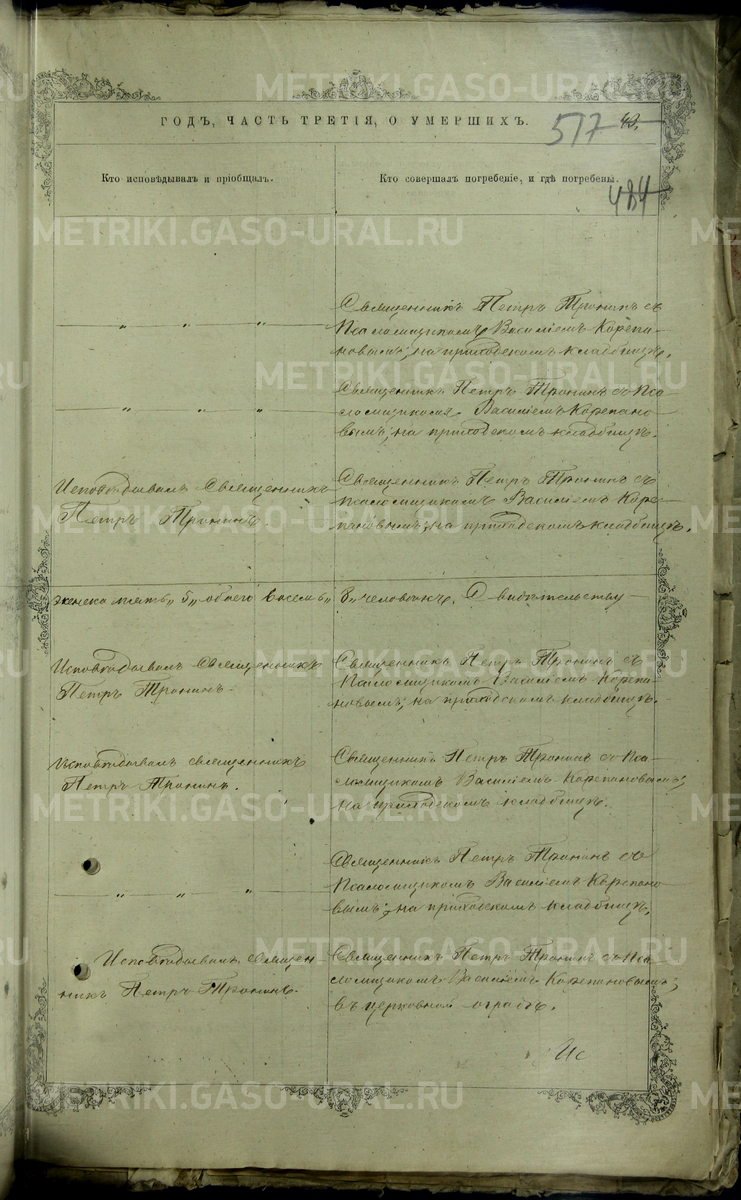 ГОДЪ, ЧАСТЬ ТРЕТІЯ, О УМЕРШИХЪ.
517
484
Кто исповѣдывалъ и пріобщалъ.
Кто совершалъ погребеніе, и гдѣ погребены.
— „ „ „ —
Священникъ Петръ Тронинъ съ
Псаломщикомъ Василіемъ Корепа-
новымъ; на приходскомъ кладбищѣ.
— „ „ „ —
Священникъ Петръ Тронинъ съ Пса-
ломщикомъ Василіемъ Корепано-
вымъ; на приходскомъ кладбищѣ.
Исповѣдывалъ Священникъ
Петръ Тронинъ.
Священникъ Петръ Тронинъ съ
Псаломщикомъ Василіемъ Коре-
пановымъ; на приходскомъ кладбищѣ.
женска пять „5„ обоего восемь „8„ человѣкъ. Свидѣтельству-
Исповѣдывалъ Священникъ
Петръ Тронинъ.
Священникъ Петръ Тронинъ съ
Псаломщикомъ Василіемъ Корепа-
новымъ; на приходскомъ кладбищѣ.
Исповѣдывалъ священникъ
Петръ Тронинъ.
Священникъ Петръ Тронинъ съ Пса-
ломщикомъ Василіемъ Корепановымъ;
на приходскомъ кладбищѣ.
— „ „ „ —
Священникъ Петръ Тронинъ съ
Псаломщикомъ Василіемъ Корепано-
вымъ; на приходскомъ кладбищѣ.
Исповѣдывалъ священ
никъ Петръ Тронинъ.
Священникъ Петръ Тронинъ съ Пса-
ломщикомъ Василіемъ Корепановымъ;
въ церковной оградѣ.
Ис
METRIKI.GASO-URAL.RU